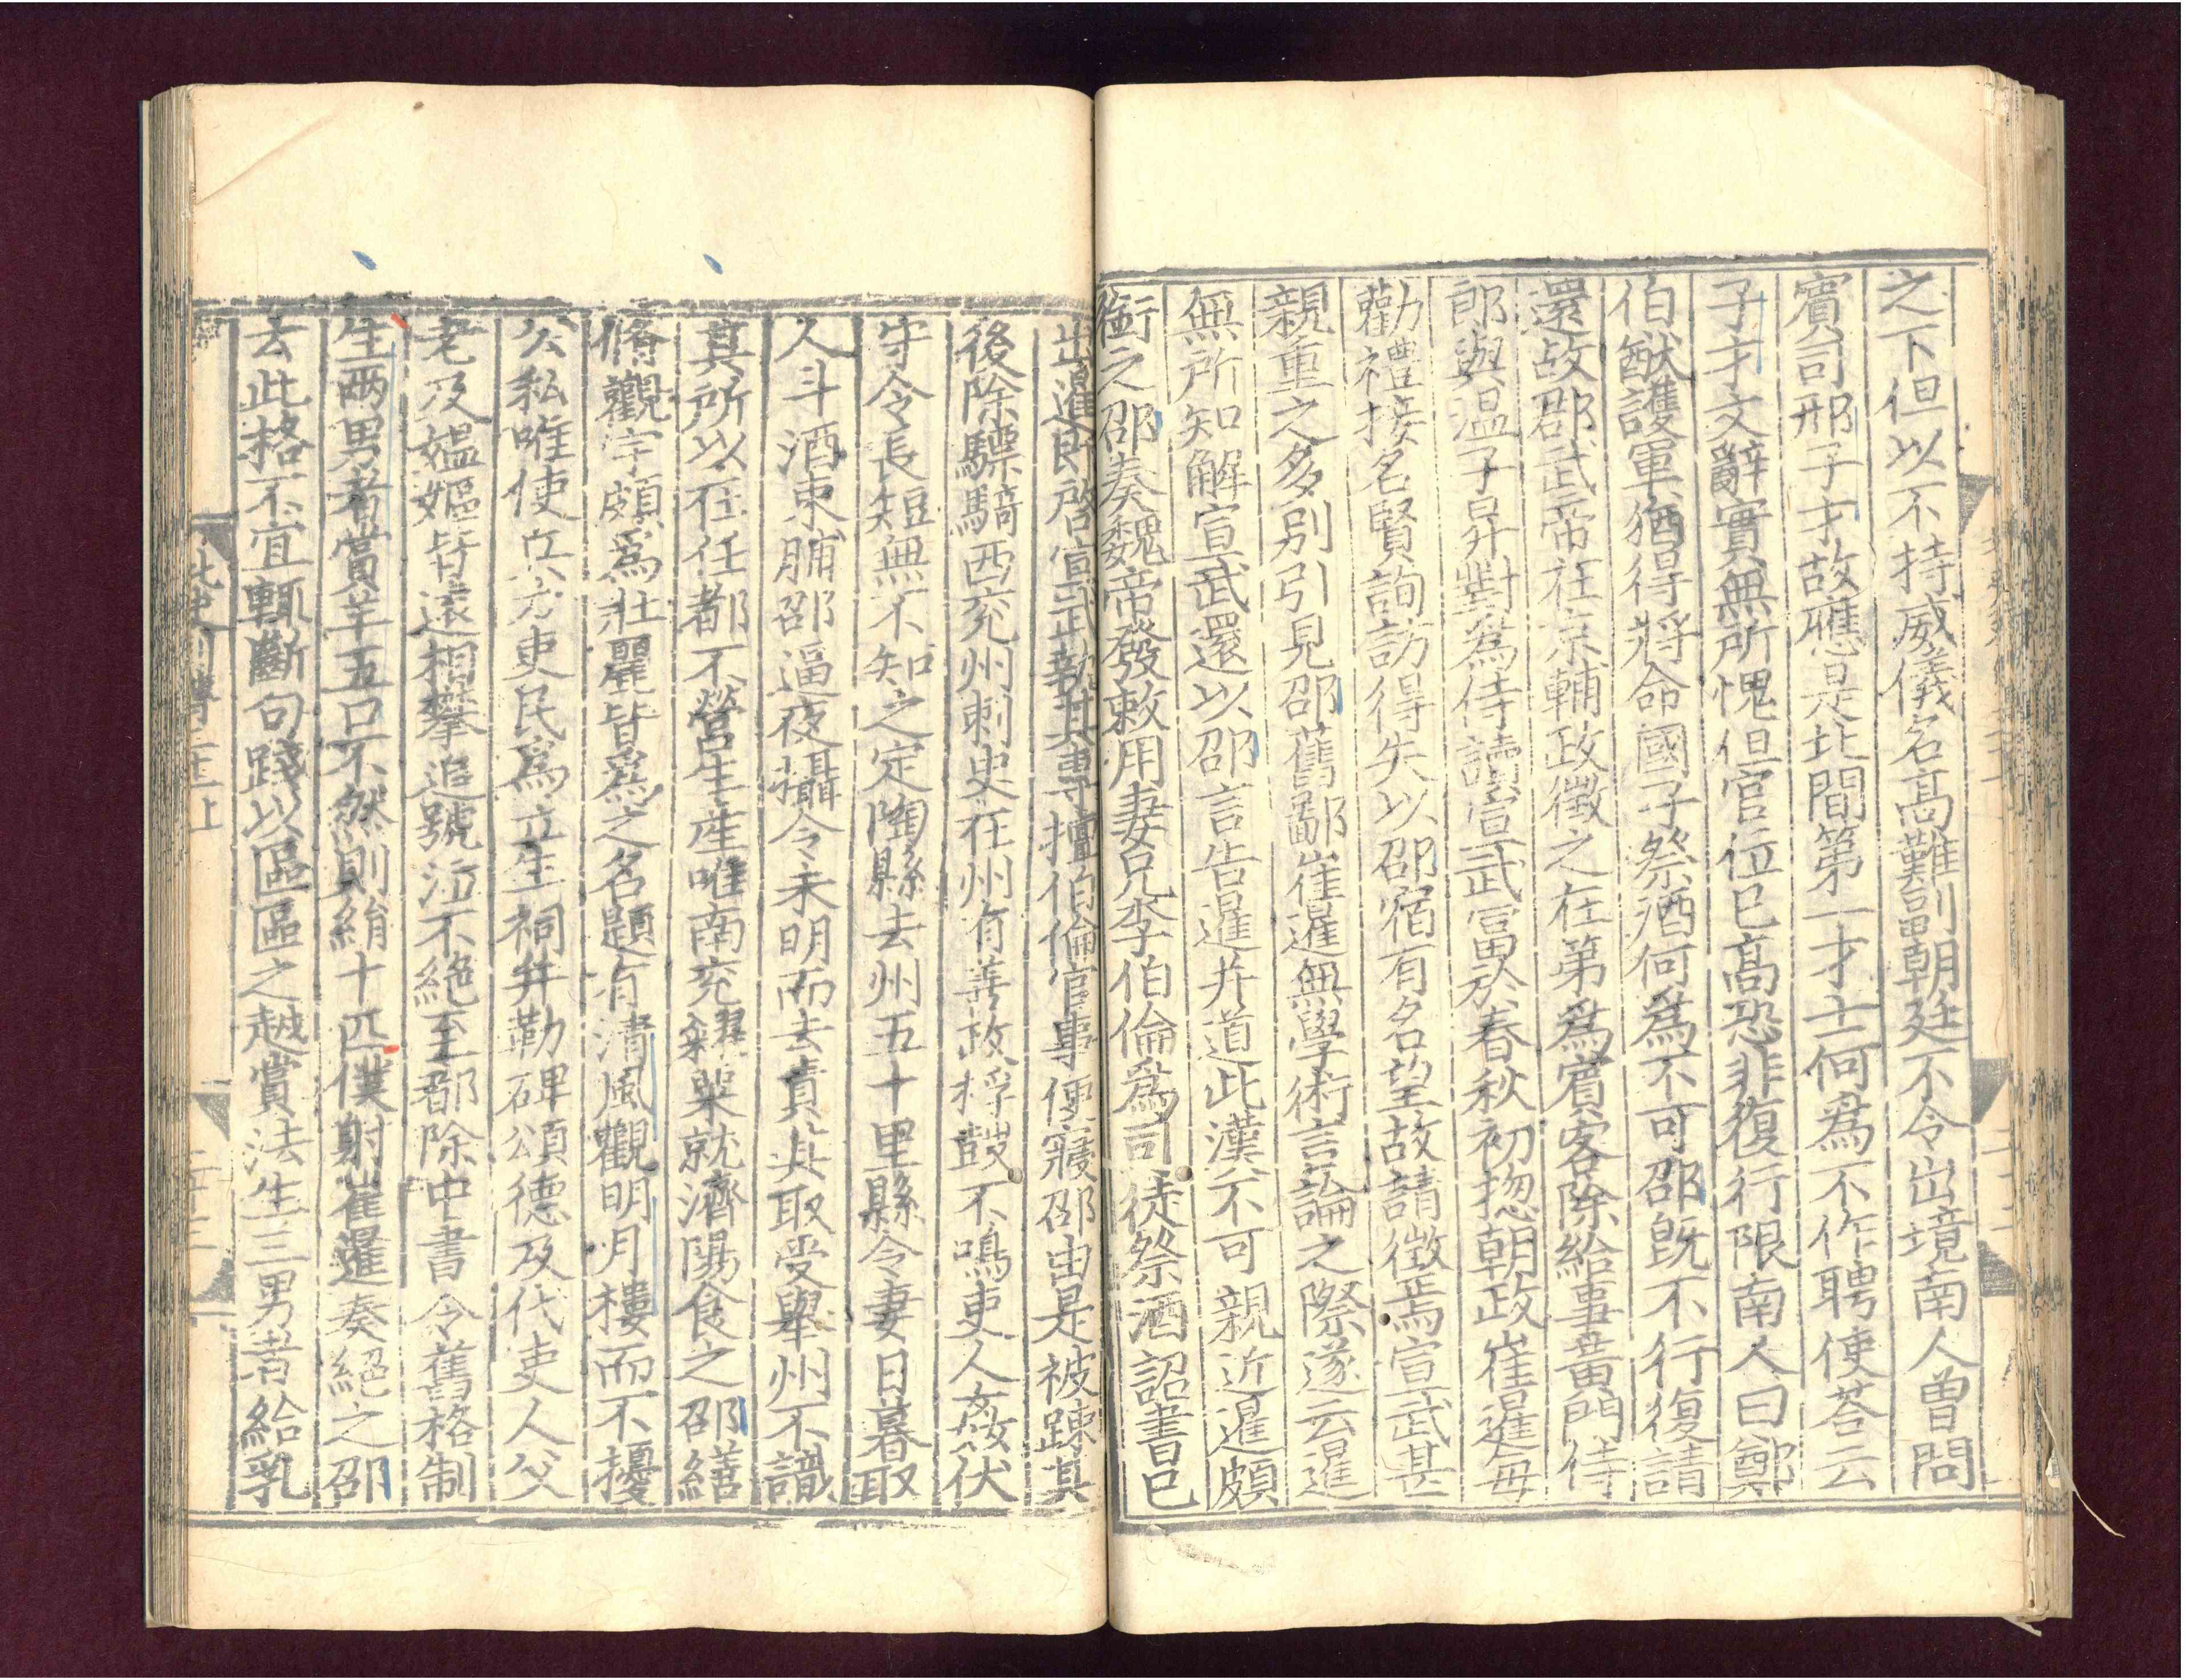 之下但以不持威儀名高難副朝廷不令出境南人曾問
賓司邢子才故應是北間第一才士何為不作聘使荅云
子才文辭實無所愧但官位已高恐非復行限南人曰鄭
伯猷護軍猶得將命國子祭酒何為不可邵旣不行復請
還故郡武帝在京輔政徵之在第為賓客除給事黃門侍
郎與温子昇對為侍讀宣武富於春秋初揔朝政崔暹每
勸禮接名賢詢訪得失以邵宿有名望故請徵焉宣武甚
親重之多別引見邵舊鄙崔暹無學術言論之際遂云暹
無所知解宣武還以邵言告暹并道此漢不可親近暹頗
銜之邵奏魏帝發敕用妻兄李伯倫為司徒祭酒詔書已
出暹即啓宣武執其專擅伯倫官事便寢邵由是被踈其
後除驃騎西兖州刺史在州有善政桴鼓不鳴吏人姦伏
守令長短無不知之定陶縣去州五十里縣令妻日暮取
人斗酒束脯邵逼夜攝令未明而去責其取受舉州不識
其所以在任都不營生産唯南兖糴粟就濟陽食之邵繕
脩觀宇頗為壯麗皆為之名題有清風觀明月樓而不擾
公私唯使兵力吏民為立生祠并勒碑頌德及代吏人父
老及媪嫗皆遠相攀追號泣不絶至都除中書令舊格制
生兩男者賞羊五口不然則絹十匹僕射崔暹奏絕之邵
云此格不宜輒斷句踐以區區之越賞法生三男者給乳
北史列傳三十一上